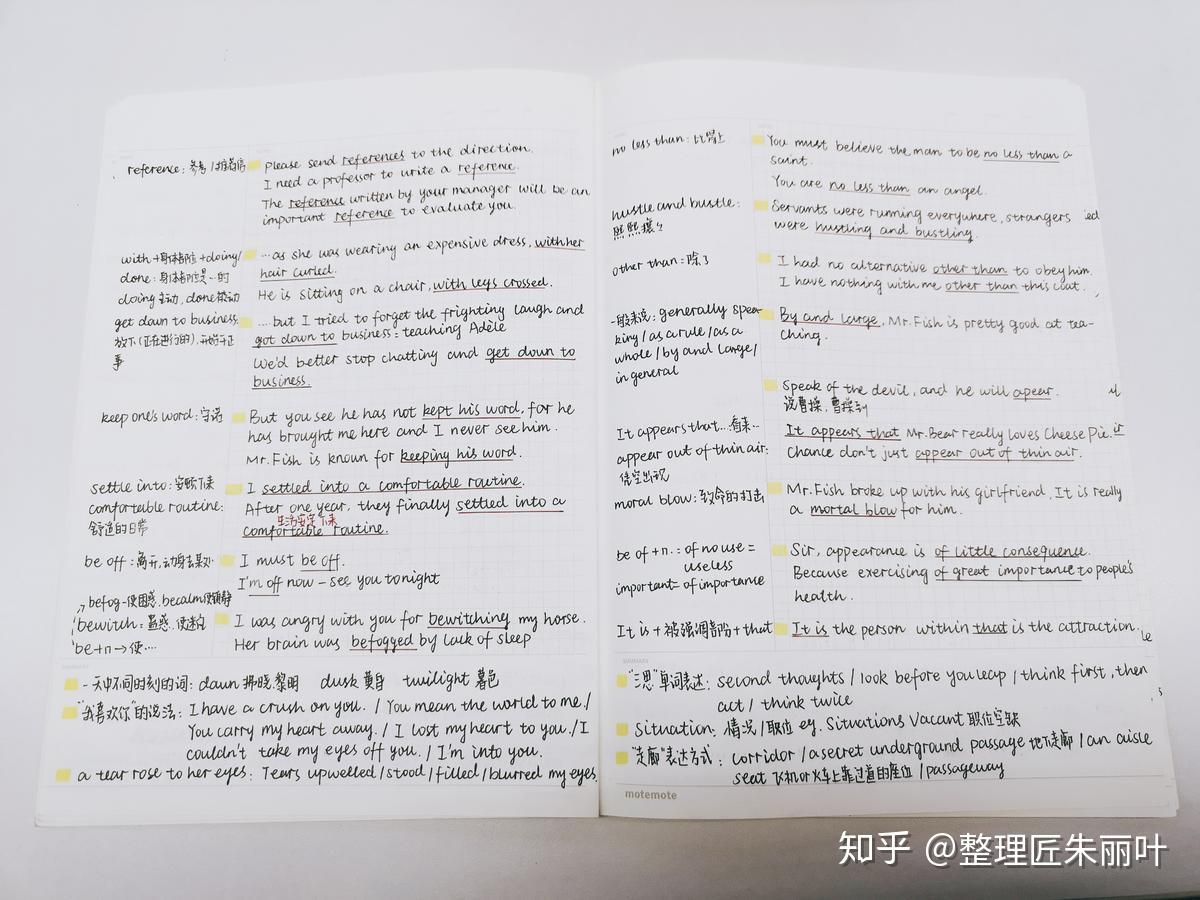 reference: 参考/推荐信
Please send references to the direction.
I need a professor to write a reference.
The reference written by your manager will be an
important reference to evaluate you.
with+身体部位+doing/
done: 身体部位是…的
doing主动, done被动
...as she was wearing an expensive dress, with her
hair curled.
He is sitting on a chair, with legs crossed.
get down to business:
放下(正在进行的),开始干正
事
....but I tried to forget the frighting laugh and
got down to business: teaching Adèle
We'd better stop chatting and get down to
business.
keep one's word: 守诺
But you see he has not kept his word, for he
has brought me here and I never see him.
Mr. Fish is known for keeping his word.
settle into: 安顿下来
comfortable routine:
舒适的日常
I settled into a comfortable routine.
After one year, they finally settled into a
生活安定下来
comfortable routine.
be off: 离开, 动身去某处
I must be off.
I'm off now - see you tonight
befog-使困惑, becalm使镇静
bewitch: 蛊惑, 使迷住
be+n→使....
I was angry with you for bewitching my horse.
Her brain was befogged by lack of sleep
一天中不同时刻的词: dawn 拂晓,黎明 dusk 黄昏 twilight 暮色
"我喜欢你"的说法: I have a crush on you. / You mean the world to me. /
You carry my heart away. / I lost my heart to you. / I
couldn't take my eyes off you. / I'm into you.
a tear rose to her eyes: Tears upwelled/stood/filled/blurred my eyes.
no less than: 比得上
You must believe the man to be no less than a
saint.
You are no less than an angel.
hustle and bustle:
熙熙攘攘
Servants were running everywhere, strangers
were hustling and bustling.
other than: 除了
I had no alternative other than to obey him.
I have nothing with me other than this coat.
一般来说: generally spea-
king/as a rule/as a
whole/by and large/
in general
By and large, Mr. Fish is pretty good at tea-
ching.
Speak of the devil, and he will apear.
说曹操, 曹操到
It appears that...看来..
appear out of thin air:
凭空出现
It appears that Mr. Bear really loves Cheese Pie.
Chance don't just appear out of thin air.
moral blow: 致命的打击
Mr. Fish broke up with his girlfriend, It is really
a mortal blow for him.
be of+n.: of no use =
useless
important= of importance
Sir, appearance is of little consequence.
Because exercising of great importance to people's
health.
It is+被强调部分+that
It is the person within that is the attraction.
SUMMARY
"三思"单词表达: second thoughts / look before you leap / think first, then
act / think twice
Situation: 情况/职位 eg. Situations Vacant 职位空缺
"走廊"表达方式: corridor / a secret underground passage 地下走廊 / an aisle
seat 飞机or火车上靠过道的座位 / passageway
motemote
知乎 @整理匠朱丽叶